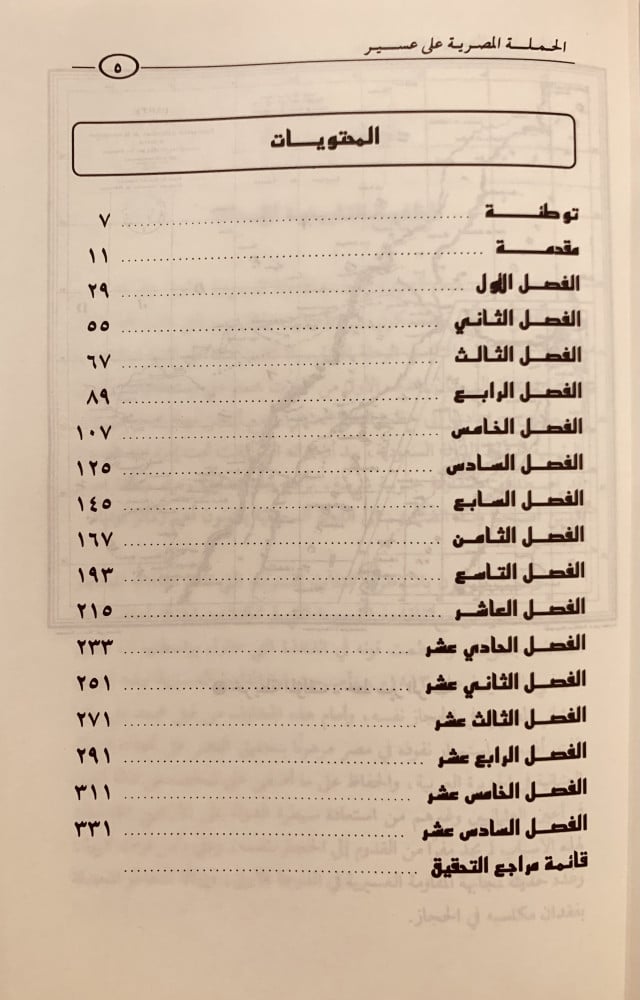 الحملة المصرية على عسير
٥
المحتويات
توطئة ٧
مقدمة ١١
الفصل الأول ٢٩
الفصل الثاني ٥٥
الفصل الثالث ٦٧
الفصل الرابع ٨٩
الفصل الخامس ١٠٧
الفصل السادس ١٢٥
الفصل السابع ١٤٥
الفصل الثامن ١٦٧
الفصل التاسع ١٩٣
الفصل العاشر ٢١٥
الفصل الحادي عشر ٢٣٣
الفصل الثاني عشر ٢٥١
الفصل الثالث عشر ٢٧١
الفصل الرابع عشر ٢٩١
الفصل الخامس عشر ٣١١
الفصل السادس عشر ٣٣١
قائمة مراجع التحقيق